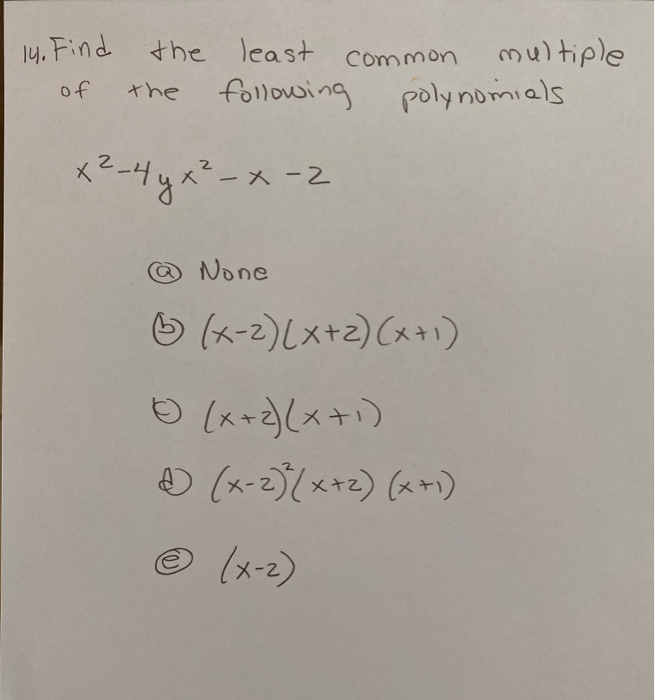 14. Find the least common multiple
of the following polynomials
x²-4yx²-x-2
ⓐ None
ⓑ (x-2)(x+2)(x+1)
ⓒ (x+2)(x+1)
ⓓ (x-2)²(x+2)(x+1)
ⓔ (x-2)